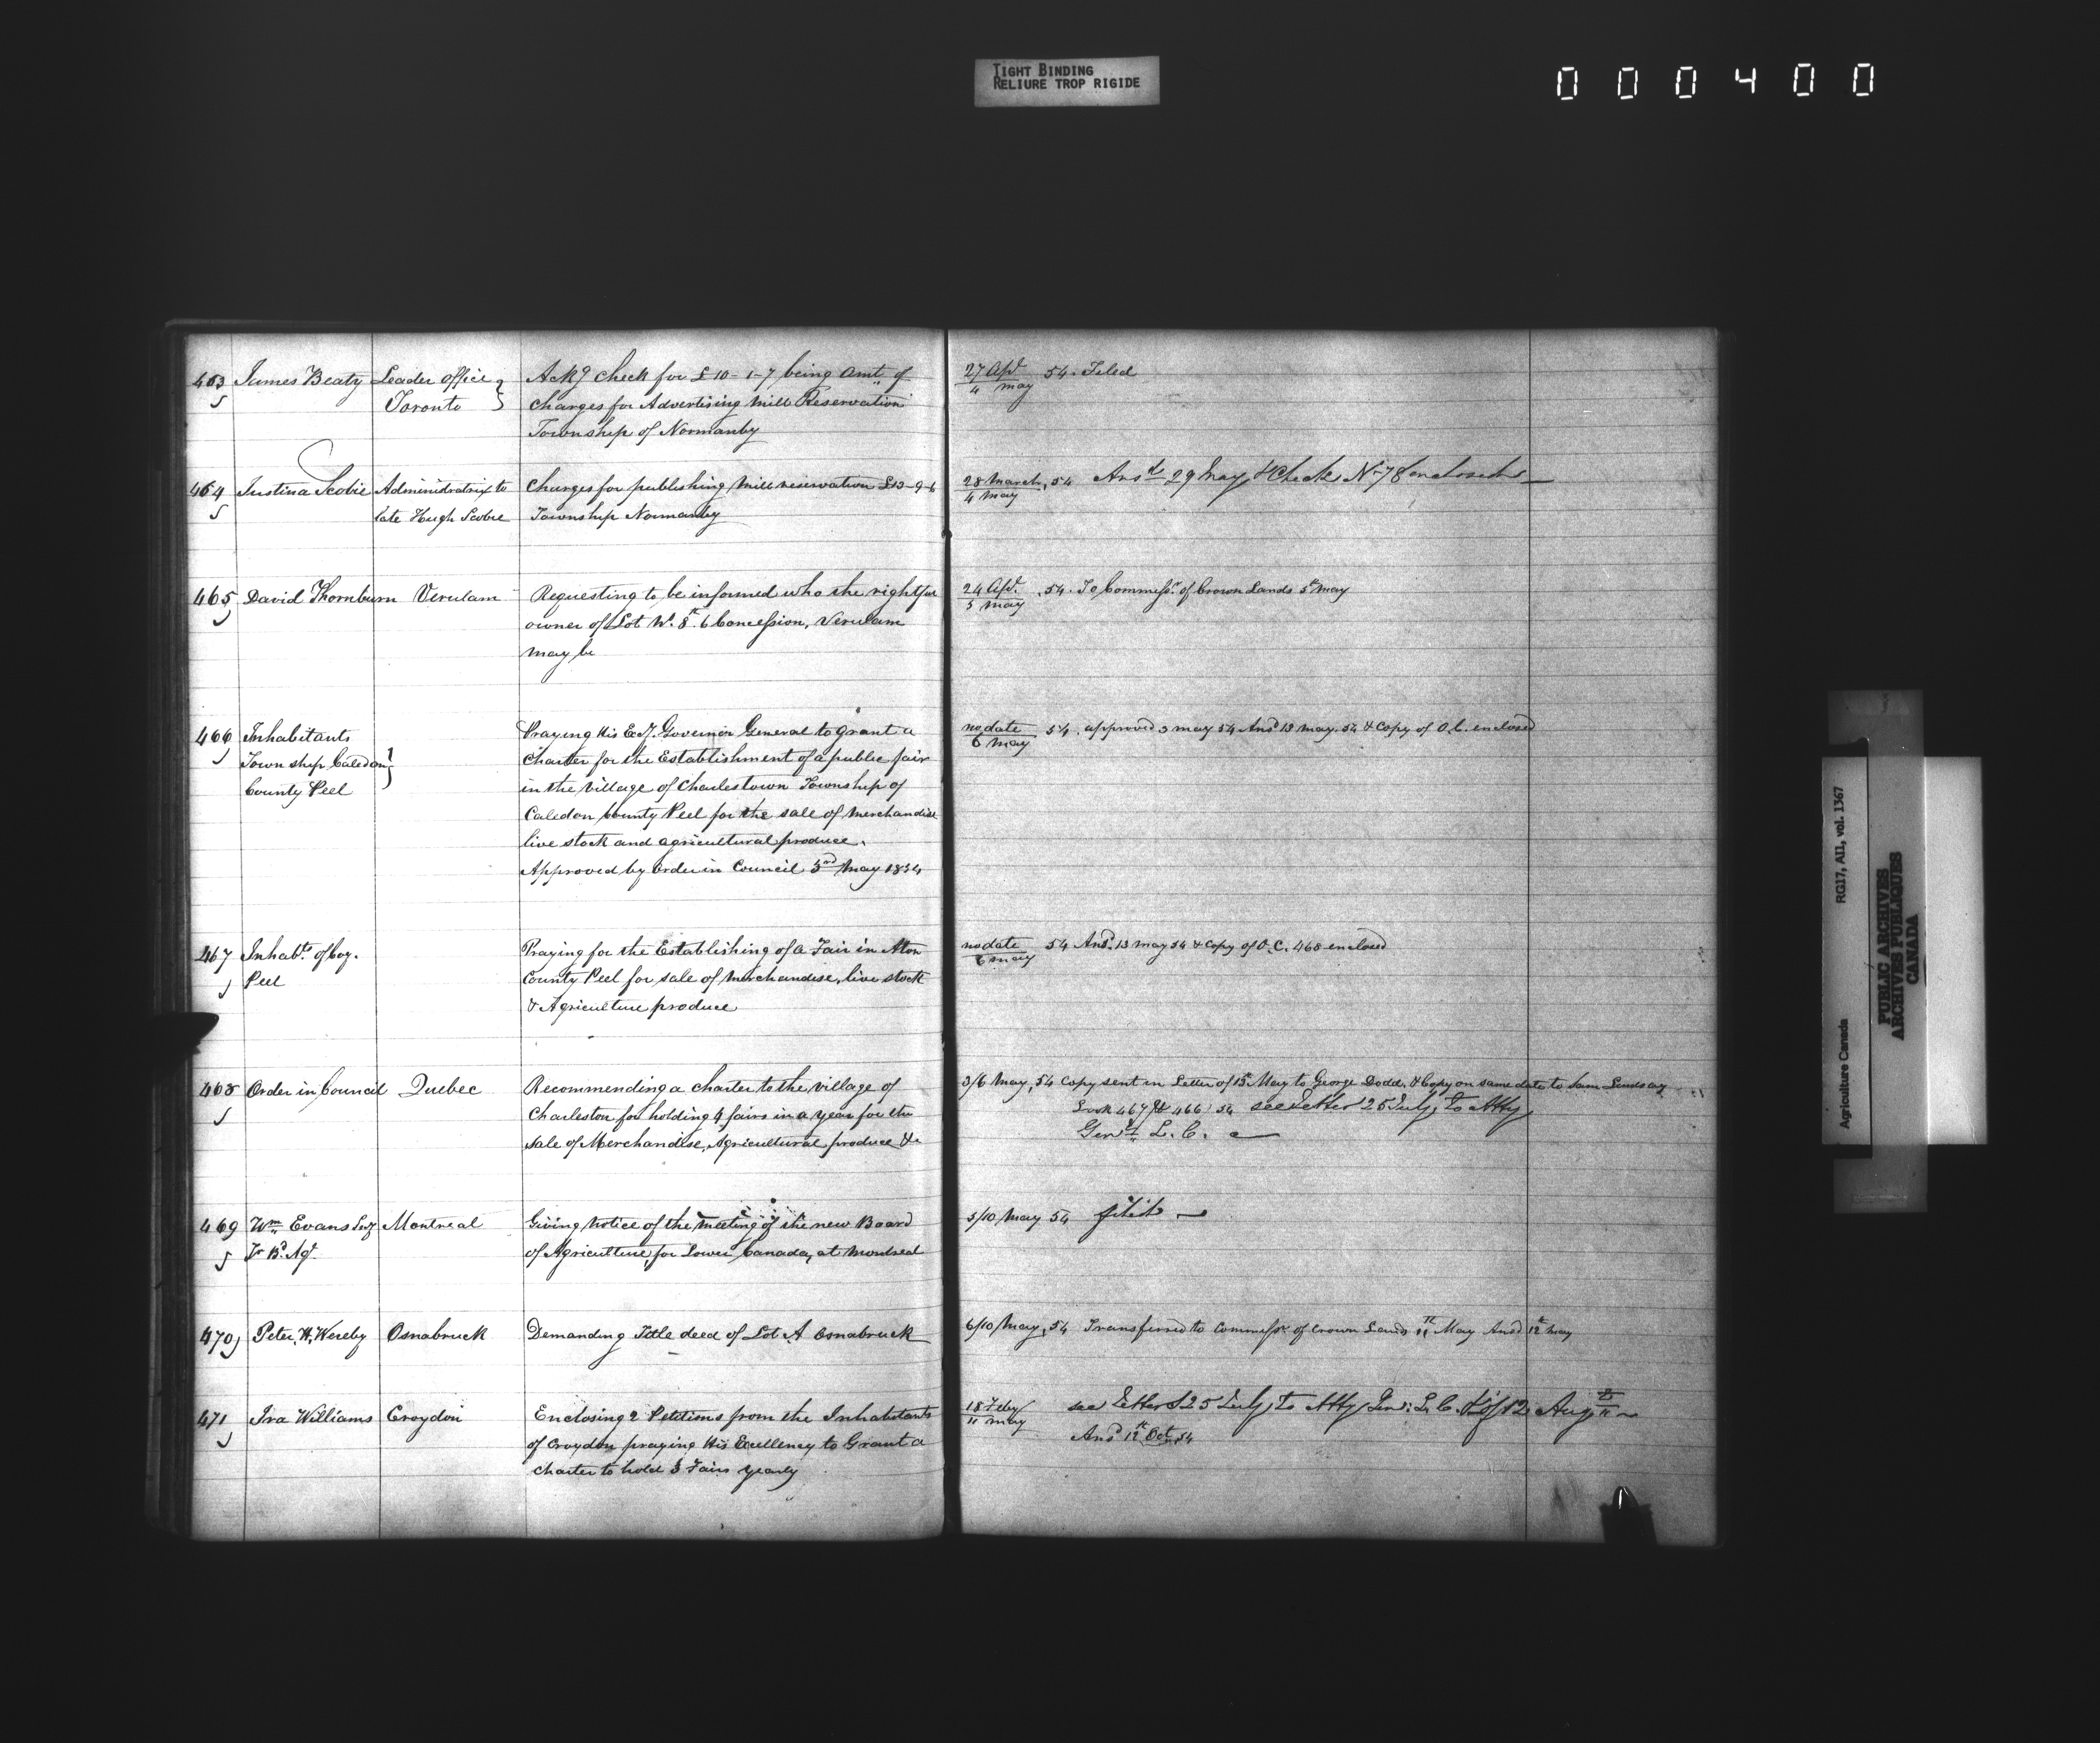 TIGHT BINDING
RELIURE TROP RIGIDE
000400
463 James Beaty Leader Office Toronto
Ackg check for £10-1-7 being Amt. of
charges for Advertising Mill Reservation
Township of Normanby
27 Apl / 4 May 54. Filed
464 Justina Scobie Administratrix to
late Hugh Scobie
Charges for publishing Mill reservation £13-9-6
Township Normanby
28 March / 4 May, 54 Ansd 29 May & Check No 78 enclosed
465 David Thornburn Verulam
Requesting to be informed who the rightful
owner of Lot W. 8. 6 Concession, Verulam
may be
24 Apl. / 5 May, 54. To Commissr. of Crown Lands 5th May
466 Inhabitants
Township Caledon
County Peel
Praying His Ex. Governor General to grant a
Charter for the Establishment of a public fair
in the village of Charlestown Township of
Caledon County Peel for the sale of merchandise
live stock and agricultural produce.
Approved by Order in Council 3rd May 1854
no date / 6 May 54. approved 3 May 54 Ansd 13 May. 54 & Copy of O.C. enclosed
467 Inhabts. of Coy.
Peel
Praying for the Establishing of a Fair in Alton
County Peel for sale of merchandise, live stock
& Agriculture produce
no date / 6 May 54 Ansd. 13 May 54 & Copy of O.C. 468 enclosed
468 Order in Council Quebec
Recommending a charter to the village of
Charleston for holding 4 fairs in a year for the
Sale of Merchandise, Agricultural produce &c
3/6 May, 54 Copy sent in Letter of 13th May to George Dodd, & Copy on same date to Sam Lindsay
Look 467 & 466/54 see Letter 25 July, to Atty
Genl. L. C.
469 Wm Evans Secy Montreal
Tr Bd. Ag.
Giving notice of the meeting of the new Board
of Agriculture, for Lower Canada, at Montreal
5/10 May 54 filed
470 Peter W. Wereby Osnabruck
Demanding Title deed of Lot A Osnabruck
6/10 May, 54 Transferred to Commissr. of Crown Lands 11th May Ansd 12th May
471 Ira Williams Croydon
Enclosing 2 Petitions from the Inhabitants
of Croydon praying His Excellency to Grant a
charter to hold 3 Fairs yearly
18 Feby / 11 May see Letters 25 July, to Atty Gen: L. C. & of 12 Aug
Ansd 12th Oct. 54
Agriculture Canada RG17, AII, vol. 1367
PUBLIC ARCHIVES
ARCHIVES PUBLIQUES
CANADA